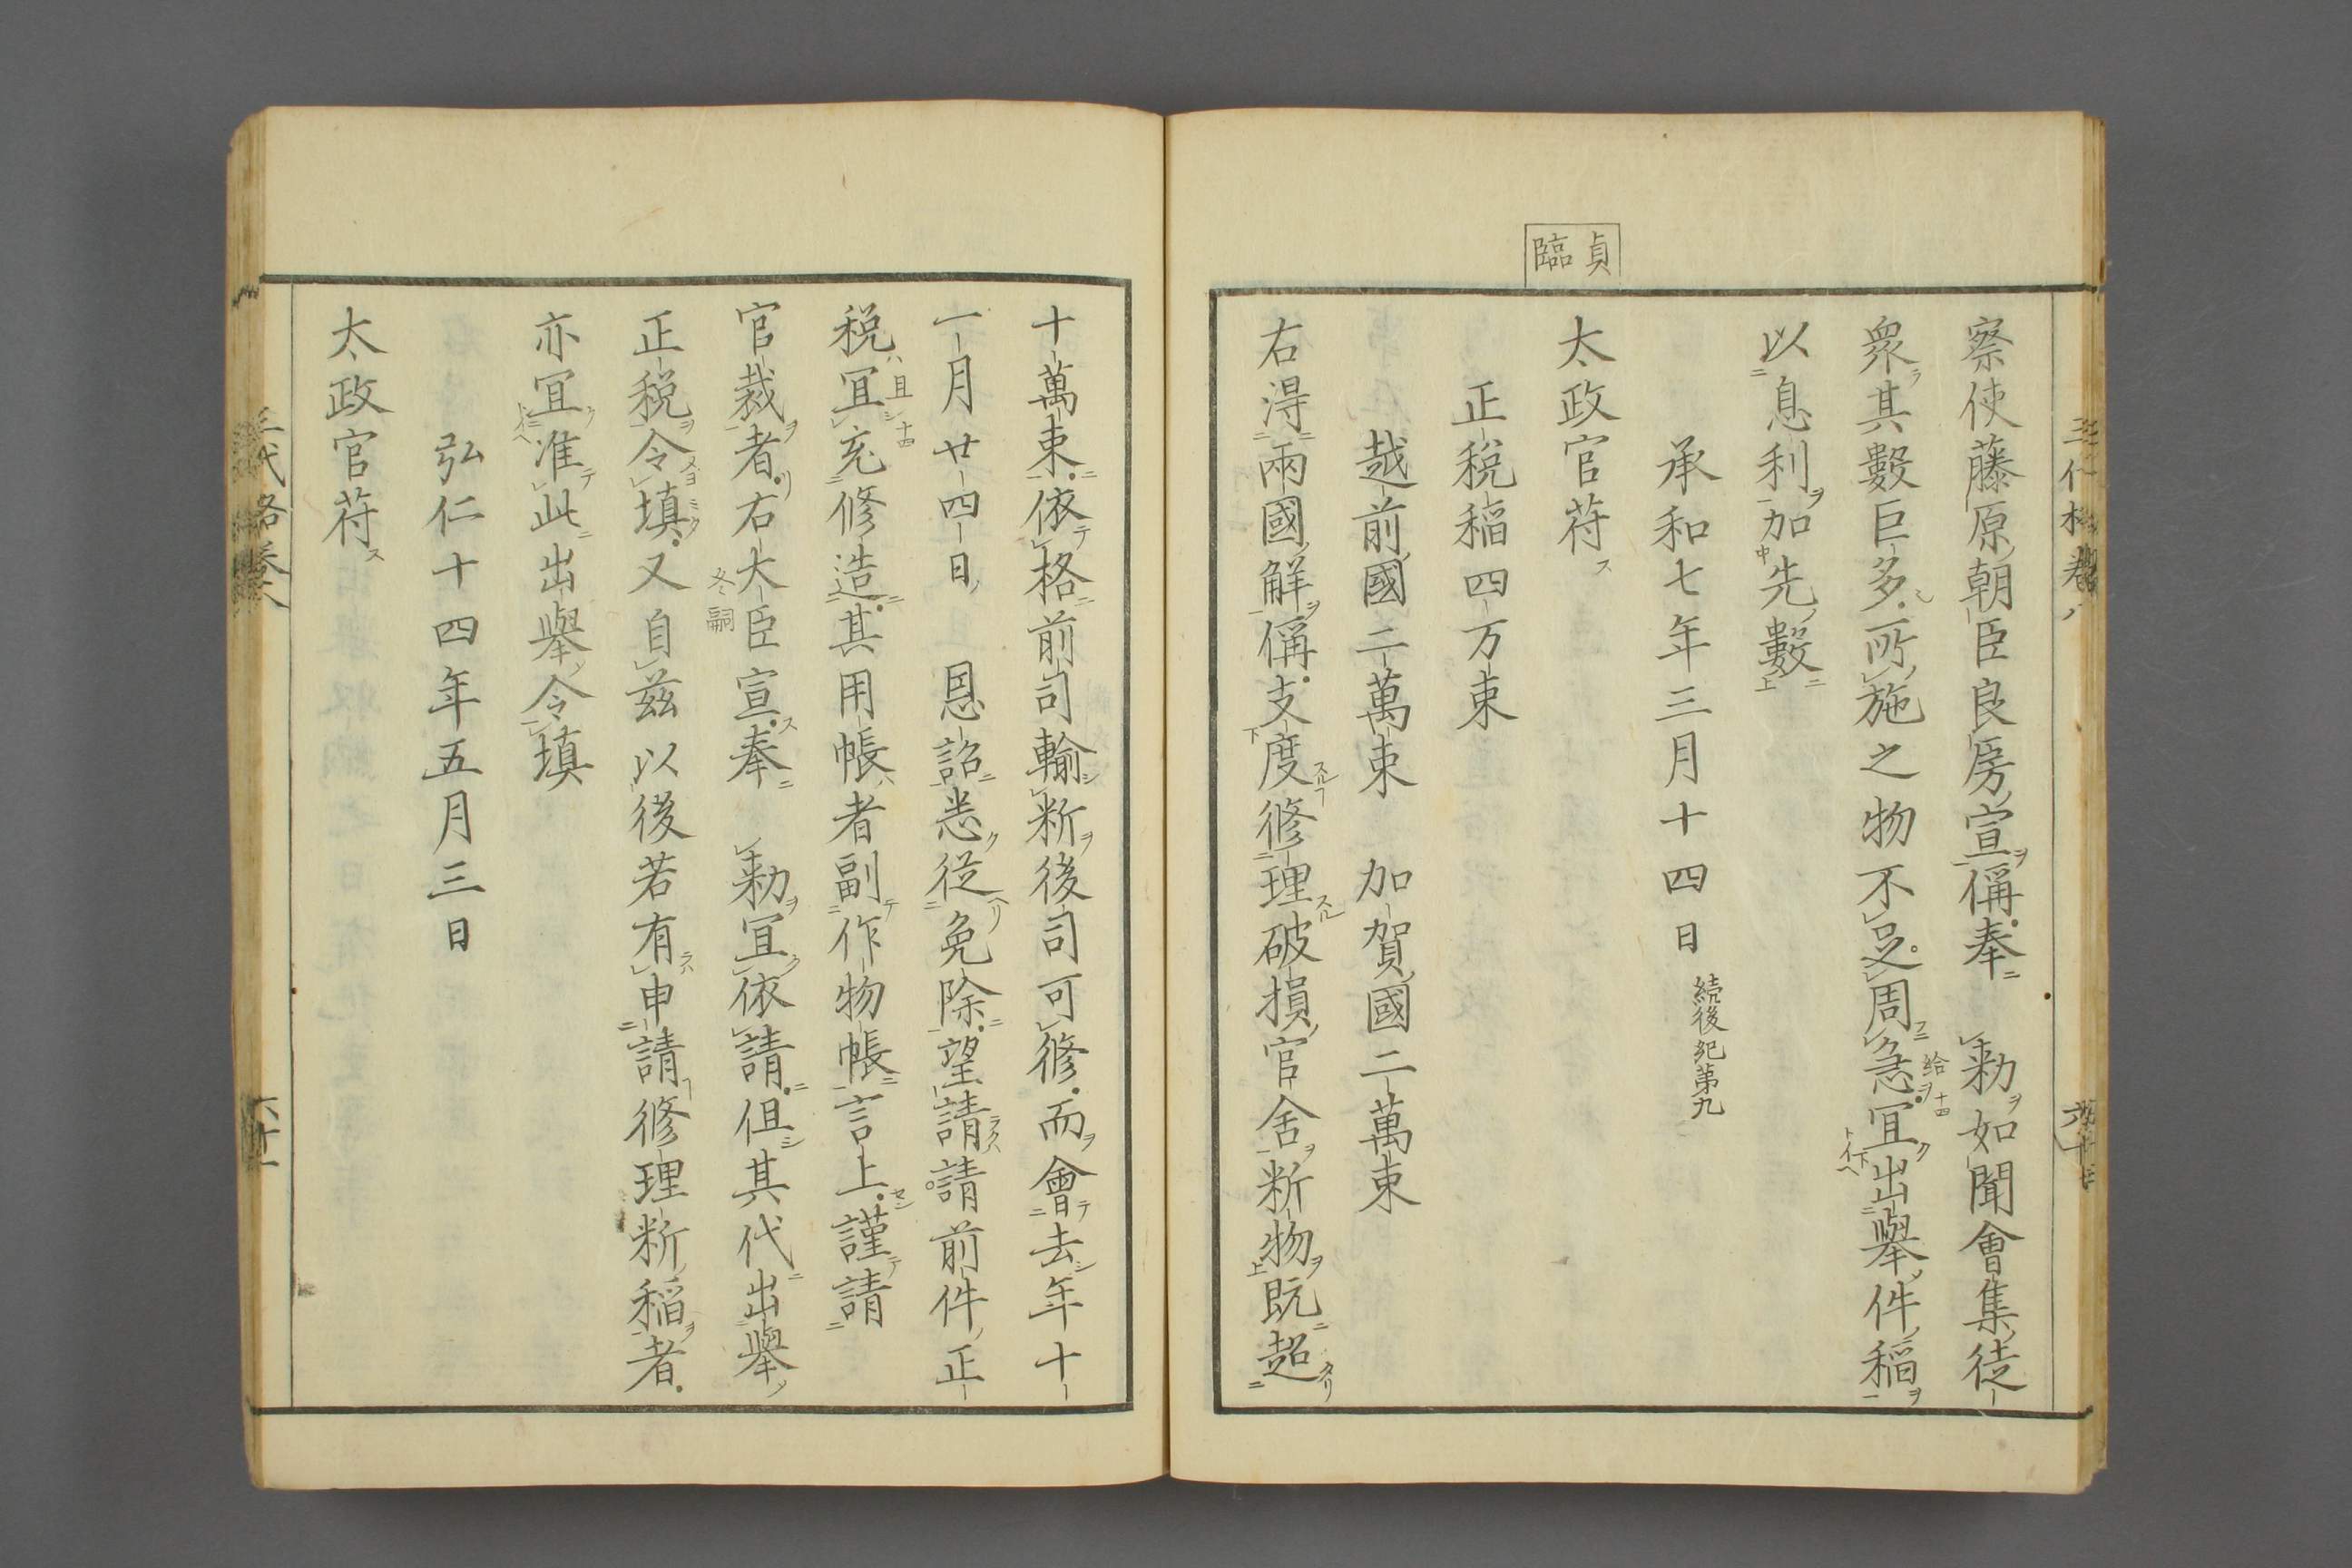 貞臨
察使藤原朝臣良房宣偁奉　勅如聞會集徒
衆其數巨多所施之物不足周急宜出擧件稲
以息利加先數
承和七年三月十四日 続後紀第九
太政官苻
正税稲四万束
越前國二萬束　加賀國二萬束
右得兩國解偁支度修理破損官舍断物既超
十萬束依格前司輸断後司可修而會去年十
一月廿四日　恩詔悉從免除望請請前件正
税宜充修造其用帳者副作物帳言上謹請
官裁者右大臣宣奉　勅宜依請但其代出擧
冬嗣
正税令填又自兹以後若有申請修理断稲者
亦宜准此出擧令填
弘仁十四年五月三日
太政官苻
三代格卷八